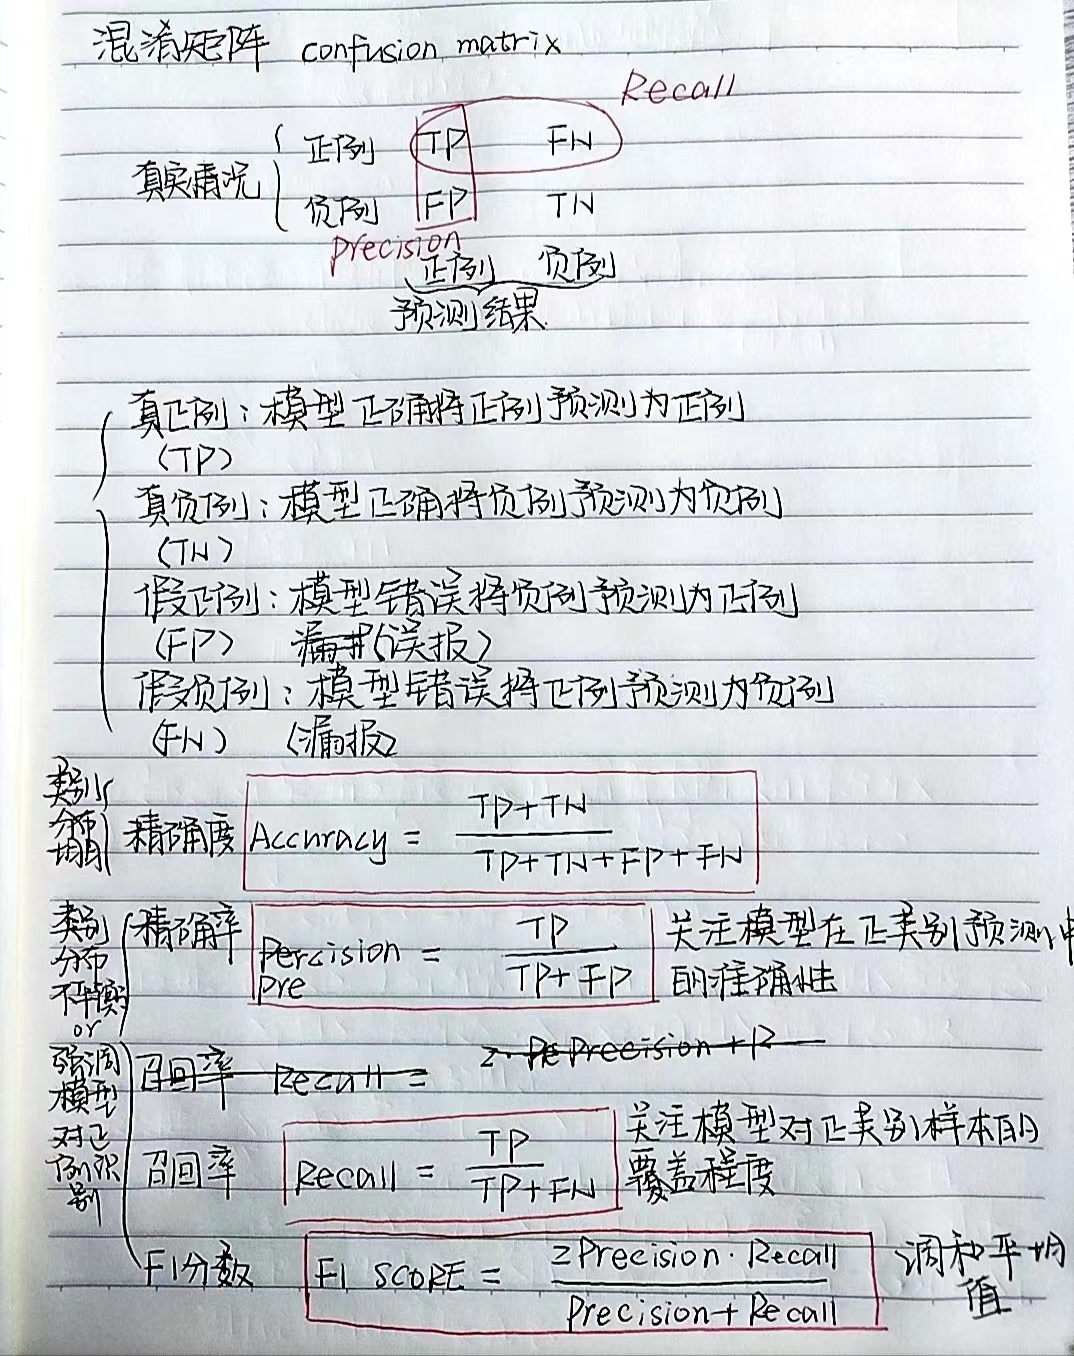 混淆矩阵 confusion matrix
Recall
真实情况
正例 TP FN
负例 FP TN
Precision
正例 负例
预测结果
真正例：模型正确将正例预测为正例
(TP)
真负例：模型正确将负例预测为负例
(TN)
假正例：模型错误将负例预测为正例
(FP) 漏(误报)
假负例：模型错误将正例预测为负例
(FN) (漏报)
类别
分布
均匀
精确度 Accuracy = TP+TN
TP+TN+FP+FN
类别
分布
不平衡
or
强调
模型
对正
例识
别
精确率 Percision = TP
Pre TP+FP
关注模型在正类别预测中
的准确性
召回率 Recall = 2·Pe Precision+R
召回率 Recall = TP
TP+FN
关注模型对正类别样本的
覆盖程度
F1分数 F1 SCORE = 2Precision·Recall
Precision+Recall
调和平均
值